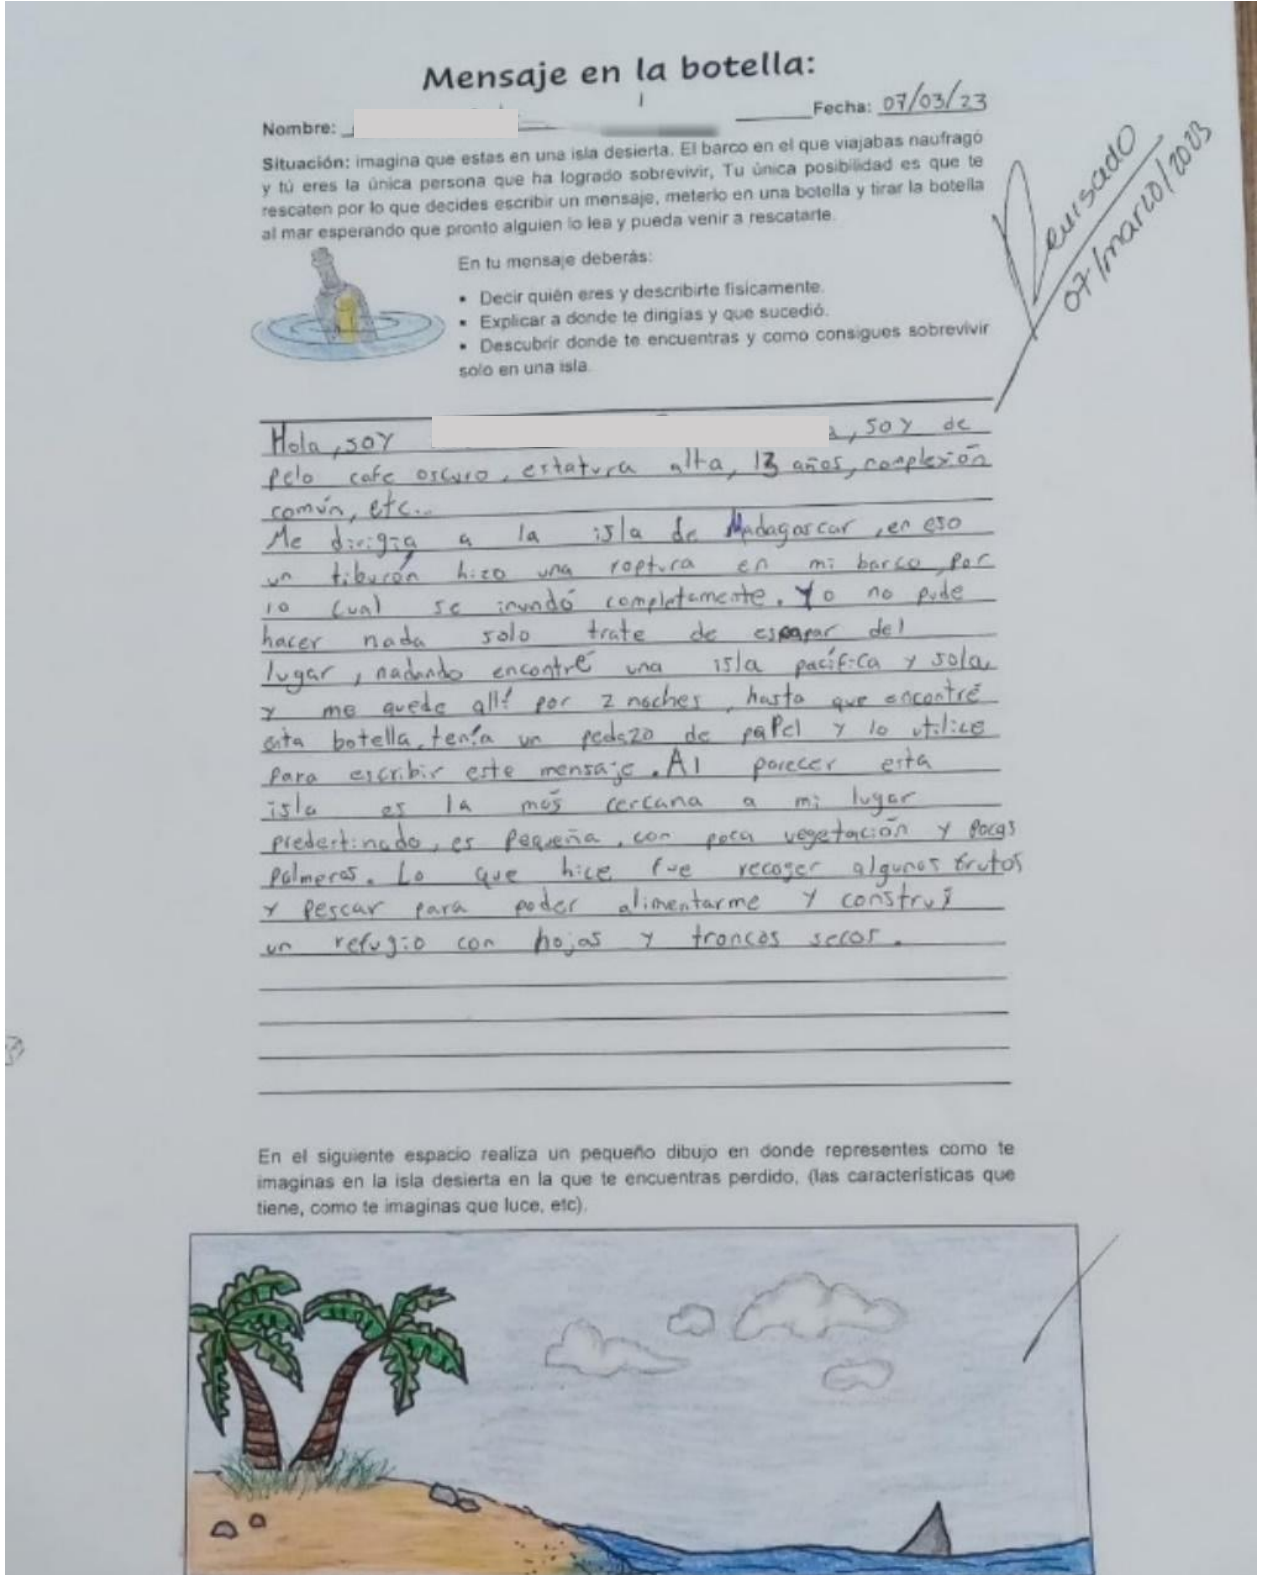 Mensaje en la botella:
Nombre: Fecha: 07/03/23
Situación: imagina que estas en una isla desierta. El barco en el que viajabas naufragó
y tú eres la única persona que ha logrado sobrevivir, Tu única posibilidad es que te
rescaten por lo que decides escribir un mensaje, meterlo en una botella y tirar la botella
al mar esperando que pronto alguien lo lea y pueda venir a rescatarte.
Revisado
07/marzo/2023
En tu mensaje deberás:
• Decir quién eres y describirte físicamente.
• Explicar a donde te dirigías y que sucedió.
• Descubrir donde te encuentras y como consigues sobrevivir
solo en una isla.
Hola, soy , soy de
pelo cafe oscuro, estatura alta, 13 años, complexión
común, etc...
Me dirigía a la isla de Madagascar, en eso
un tiburón hizo una roptura en mi barco, por
lo cual se inundó completamente. Yo no pude
hacer nada solo trate de espapar del
lugar, nadando encontré una isla pacífica y sola,
y me quede allí por 2 noches, hasta que encontré
esta botella, tenía un pedazo de papel y lo utilice
para escribir este mensaje. Al parecer esta
isla es la más cercana a mi lugar
predestinado, es pequeña, con poca vegetación y pocas
palmeras. Lo que hice fue recoger algunos frutos
y pescar para poder alimentarme y construí
un refugio con hojas y troncos secos.
En el siguiente espacio realiza un pequeño dibujo en donde representes como te
imaginas en la isla desierta en la que te encuentras perdido, (las características que
tiene, como te imaginas que luce, etc).